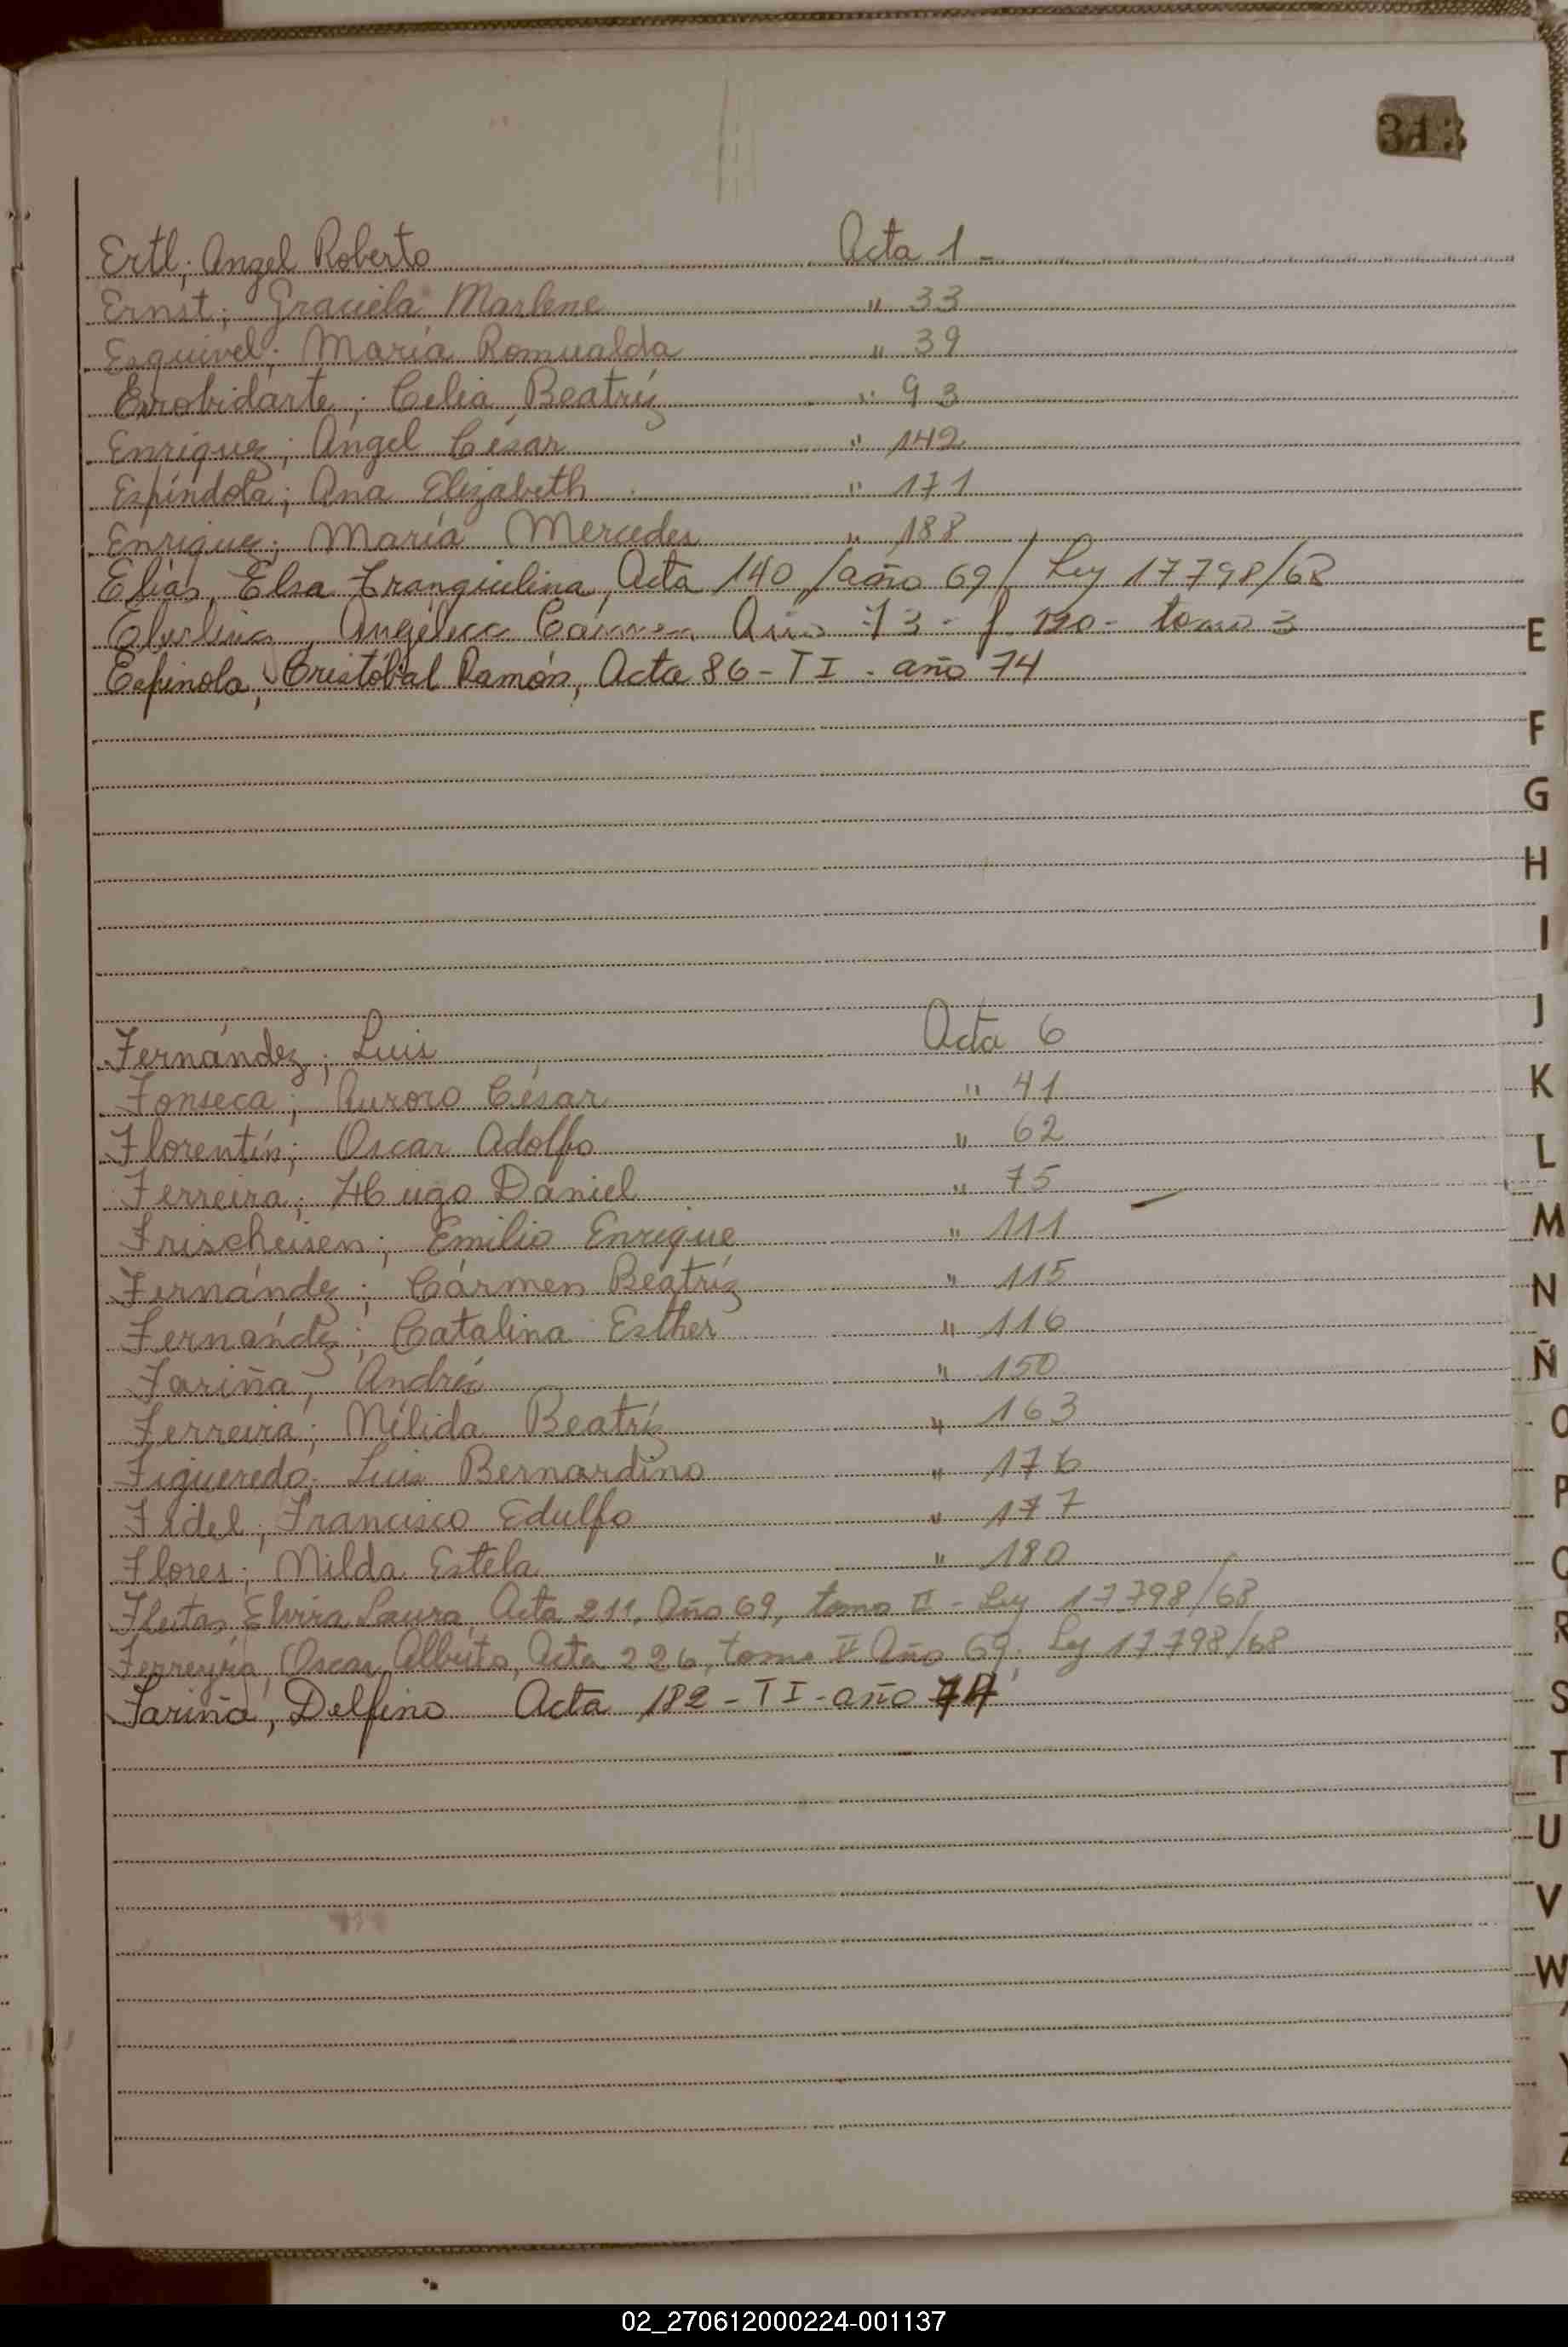 313
Ertl; Angel Roberto Acta 1 -
Ernst; Graciela Marlene " 33
Esquivel; María Romualda " 39
Errobidarte; Celia Beatríz " 93
Enriquez; Ángel César " 142
Espíndola; Ana Elizabeth " 171
Enriquez; María Mercedes " 188
Elías, Elsa Acta 140 / año 69 / Ley 17798/68
Angélica Cármen Año 73 - f. 120 - tomo 3
Espinola, Cristóbal Ramón, Acta 86 - T I - año 74
Fernández; Luis Acta 6
Fonseca; Auroro César " 41
Florentín; Oscar Adolfo " 62
Ferreira; Hugo Daniel " 75
Frischeisen; Emilio Enrique " 111
Fernández; Cármen Beatríz " 115
Fernández; Catalina Esther " 116
Fariña; Andrés " 150
Ferreira; Nélida Beatríz " 163
Figueredo; Luis Bernardino " 176
Fidel; Francisco Edulfo " 177
Flores; Nilda Estela " 180
Fleitas, Elvira Laura, Acta 211, Año 69, tomo II - Ley 17.798/68
Ferreyra, Oscar Alberto, Acta 226, tomo II Año 69; Ley 17.798/68
Fariña, Delfino Acta 182 - T I - año 74
E
F
G
H
I
J
K
L
M
N
Ñ
O
P
Q
R
S
T
U
V
W
Z
02_270612000224-001137